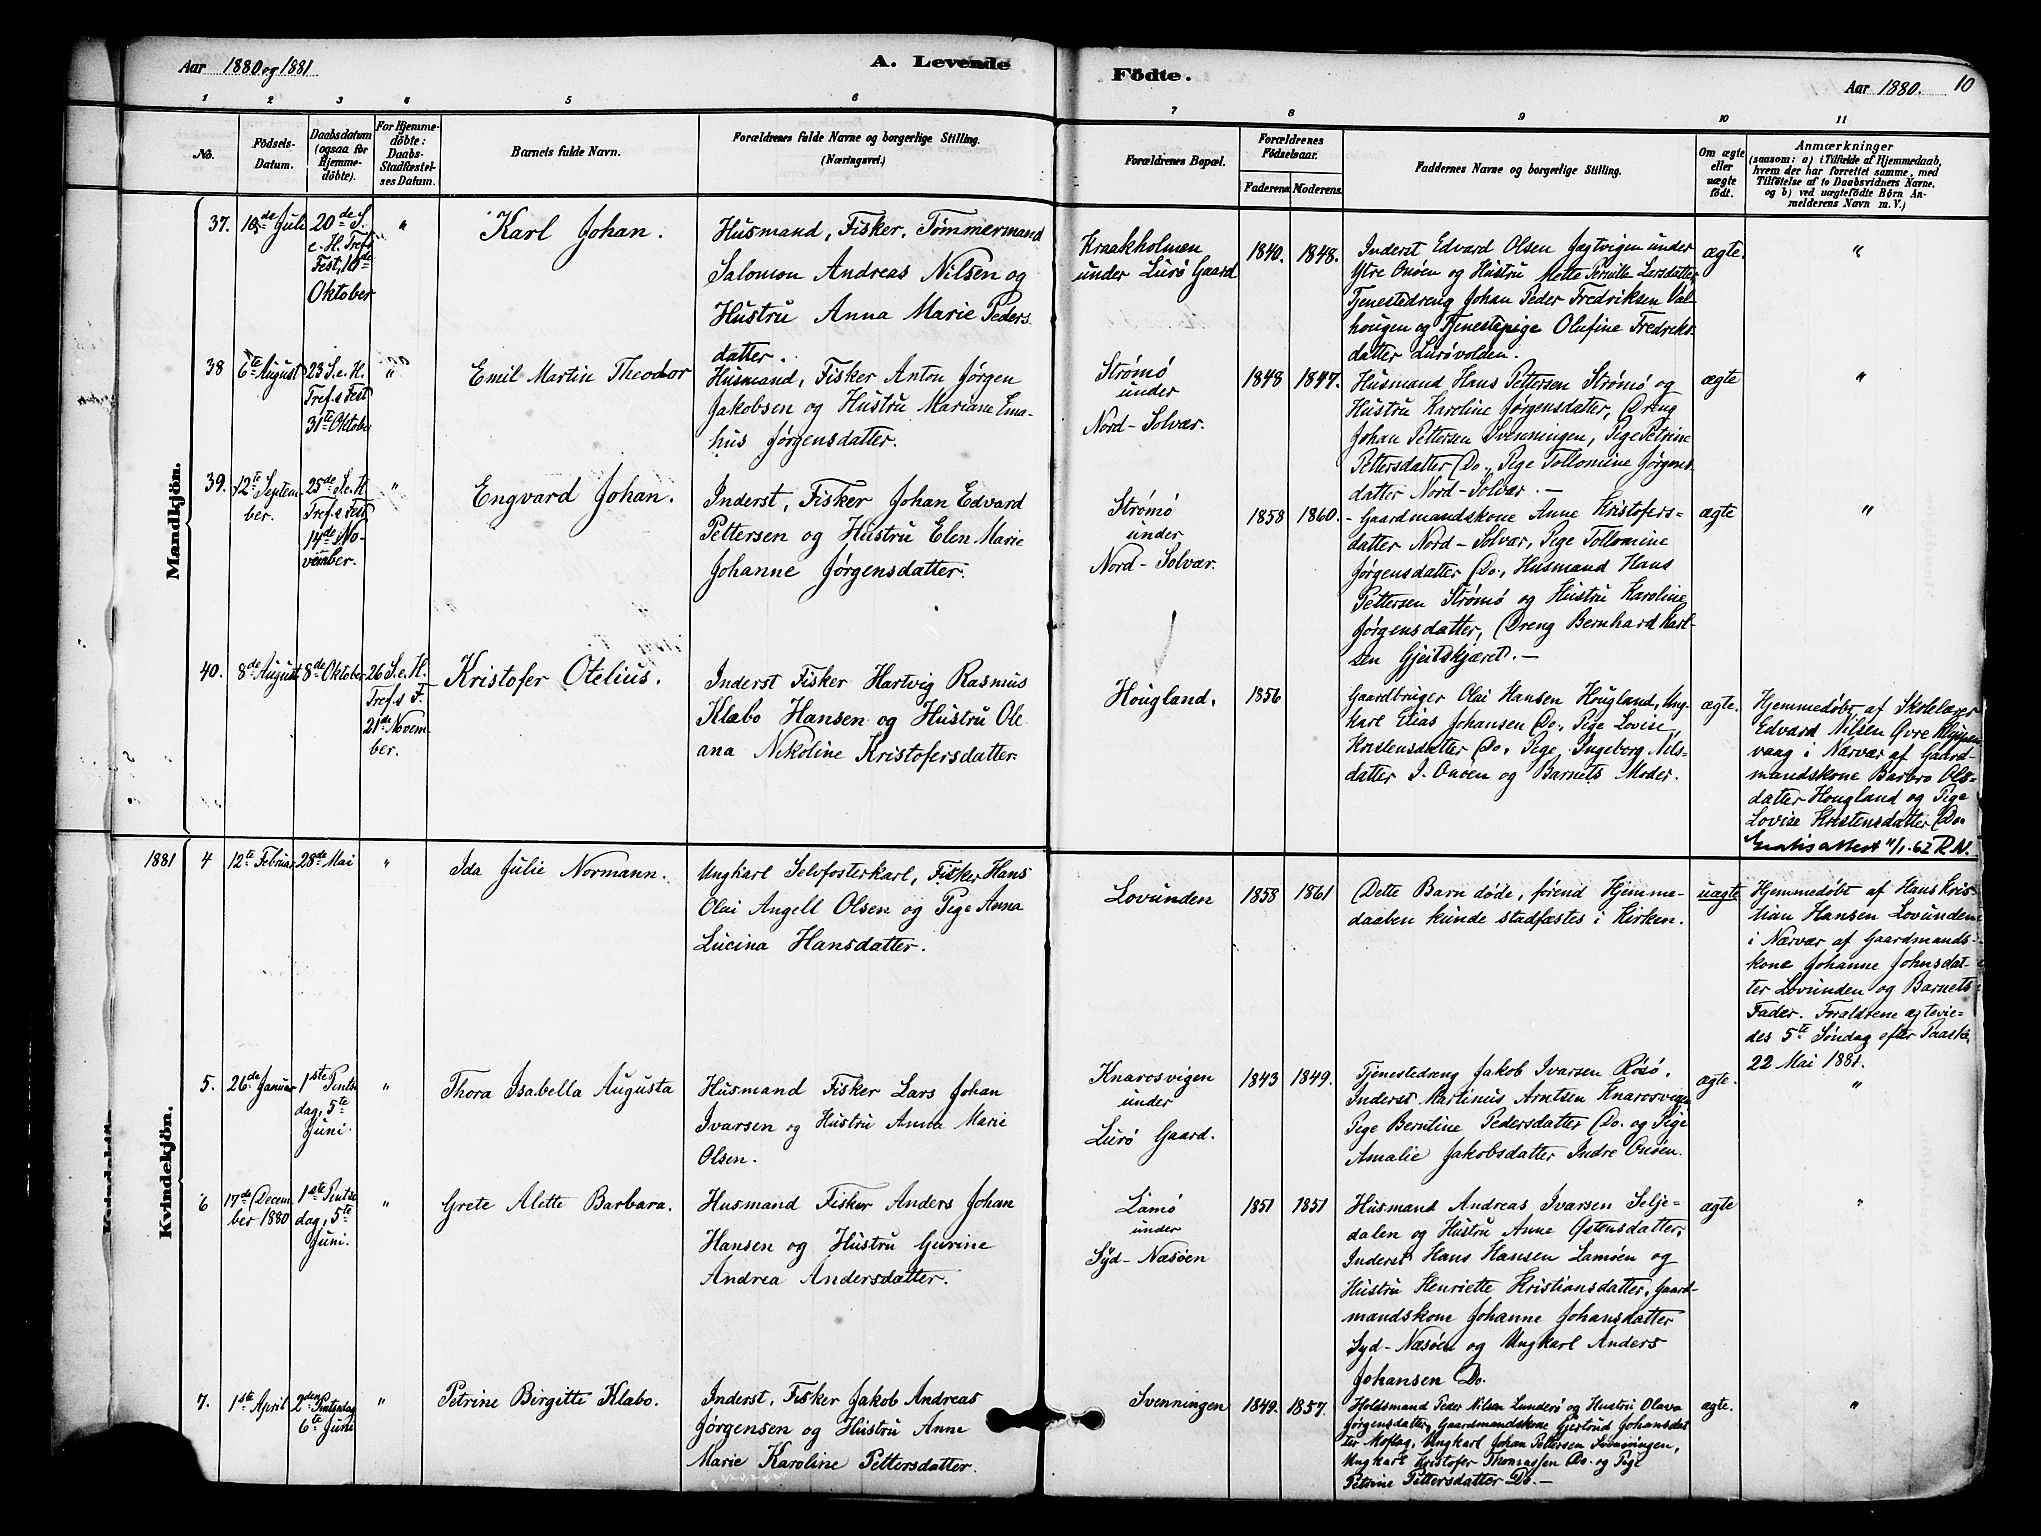 Aar 1880 og 1881
A. Levende
Födte.
Aar 1880.
10
1 2 3 4 5 6 7 8 9 10 11
No.
Födsels-
Datum.
Daabsdatum
(ogsaa for
Hjemme-
döbte).
For Hjemme-
döbte:
Daabs-
Stadfæstel-
ses Datum.
Barnets fulde Navn.
Forældrenes fulde Navne og borgerlige Stilling.
(Næringsvei.)
Forældrenes Bopæl.
Forældrenes
Födselsaar.
Faderens. Moderens.
Faddernes Navne og borgerlige Stilling.
Om ægte
eller
uægte
födt.
Anmærkninger
(saasom: a) i Tilfælde af Hjemmedaab,
hvem der har forrettet samme, med
Tilföielse af to Daabsvidners Navne,
og b) ved uægtefödte Börn An-
melderens Navn m. V.)
Mandkjön.
37.
10de Juli
20de S.
e. H. Tref.s
Fest, 10de
Oktober
"
Karl Johan.
Husmand, Fisker, Tømmermand
Salomon Andreas Nilsen og
Hustru Anna Marie Peders
datter.
Kraakholmen
under Lurø Gaard
1840.
1848.
Inderst Edvard Olsen Jægtvigen under
Ytre Onøen og Hustru Mette Pernille Larsdatter,
Tjenestedreng Johan Peder Fredriksen Val-
hougen og Tjenestepige Olufine Fredriks-
datter Lurøvolden.
ægte.
"
38
6te August
23 S. e. H.
Tref.s Fest
31te Oktober
"
Emil Martin Theodor
Husmand, Fisker Anton Jørgen
Jakobsen og Hustru Mariane Ema-
hus Jørgensdatter.
Strømø
under
Nord-Solvær.
1848
1847.
Husmand Hans Pettersen Strømø og
Hustru Karoline Jørgensdatter, Dreng
Johan Pettersen Svenningen, Pige Petrine
Pettersdatter Do., Pige Tollomine Jørgens-
datter Nord-Solvær. —
ægte
"
39.
12te Septem
ber.
25de S. e. H.
Tref.s Fest
14de No-
vember.
"
Engvard Johan.
Inderst, Fisker Johan Edvard
Pettersen og Hustru Elen Marie
Johanne Jørgensdatter.
Strømø
under
Nord-Solvær.
1858
1860.
- Gaardmandskone Anne Kristofers-
datter Nord-Solvær, Pige Tollomine
Jørgensdatter Do., Husmand Hans
Pettersen Strømø og Hustru Karoline
Jørgensdatter, Dreng Bernhard Karl-
sen Gjeitskjæret. —
ægte
"
40.
8de August
8de Oktober
26 S. e. H.
Tref.s F.
21de Novem
ber.
Kristofer Otelius.
Inderst Fisker Hartvig Rasmus
Klæbo Hansen og Hustru Ole
ana Nikoline Kristofersdatter.
Hougland.
1856
Gaardbruger Olai Hansen Hougland, Ung-
karl Elias Johansen Do., Pige Lovise
Kristensdatter Do., Pige Ingeborg Nils-
datter I. Onøen og Barnets Moder.
ægte.
Hjemmedøbt af Skolelærer
Edvard Nilsen Øvre
vaag i Nærvær af Gaard-
mandskone Barbro Ols-
datter Hougland og Pige
Lovise Kristensdatter Do.
Gratisattest 11/1-62 R.N.
1881
Kvindekjön.
4
12te Februar
28de Mai
"
Ida Julie Normann.
Ungkarl Selvfosterkarl, Fisker Hans
Olai Angell Olsen og Pige Anna
Lucina Hansdatter.
Lovunden
1858
1861
Dette Barn døde, førend Hjemme-
daaben kunde stadfæstes i Kirken.
uægte
Hjemmedøbt af Hans Kris-
tian Hansen Lovunden
i Nærvær af Gaardmands-
kone Johanne Johnsdat-
ter Lovunden og Barnets
Fader. Forældrene ægtevie-
des 5te Søndag efter Paaske,
22 Mai 1881.
5.
26de Januar
1ste Pintse
dag, 5te
Juni.
"
Thora Isabella Augusta
Husmand Fisker Lars Johan
Ivarsen og Hustru Anna Marie
Olsen.
Knarosvigen
under
Lurø Gaard.
1843
1849.
Tjenestedreng Jakob Ivarsen Røsø,
Inderst Martinus Arntsen Knarosvigen
Pige Berntine Pedersdatter Do. og Pige
Amalie Jakobsdatter Indre Onøen.
ægte.
"
6
17de Decem
ber 1880
1ste Pintse
dag, 5te
Juni.
"
Grete Alette Barbara.
Husmand Fisker Anders Johan
Hansen og Hustru Gurine
Andrea Andersdatter.
Lamø
under
Syd-Næsøen
1851
1851
Husmand Andreas Ivarsen Selje-
dalen og Hustru Anne Østensdatter,
Inderst Hans Hansen Lamøen og
Hustru Henriette Kristiansdatter, Gaard-
mandskone Johanne Johansdatter
Syd-Næsøen og Ungkarl Anders
Johansen Do.
ægte
"
7.
1ste April
2den Pintsedag
6te Juni
"
Petrine Birgitte Klæbo.
Inderst, Fisker Jakob Andreas
Jørgensen og Hustru Anne
Marie Karoline Pettersdatter.
Svenningen
1849.
1857.
Holdsmand Peder Nilsen Lunderø og Hustru Olava
Jørgensdatter, Gaardmandskone Gjertrud Johansdat
ter Moflag, Ungkarl Johan Pettersen Svenningen,
Ungkarl Kristofer Thomassen Do. og Pige
Petrine Pettersdatter Do. —
ægte.
"